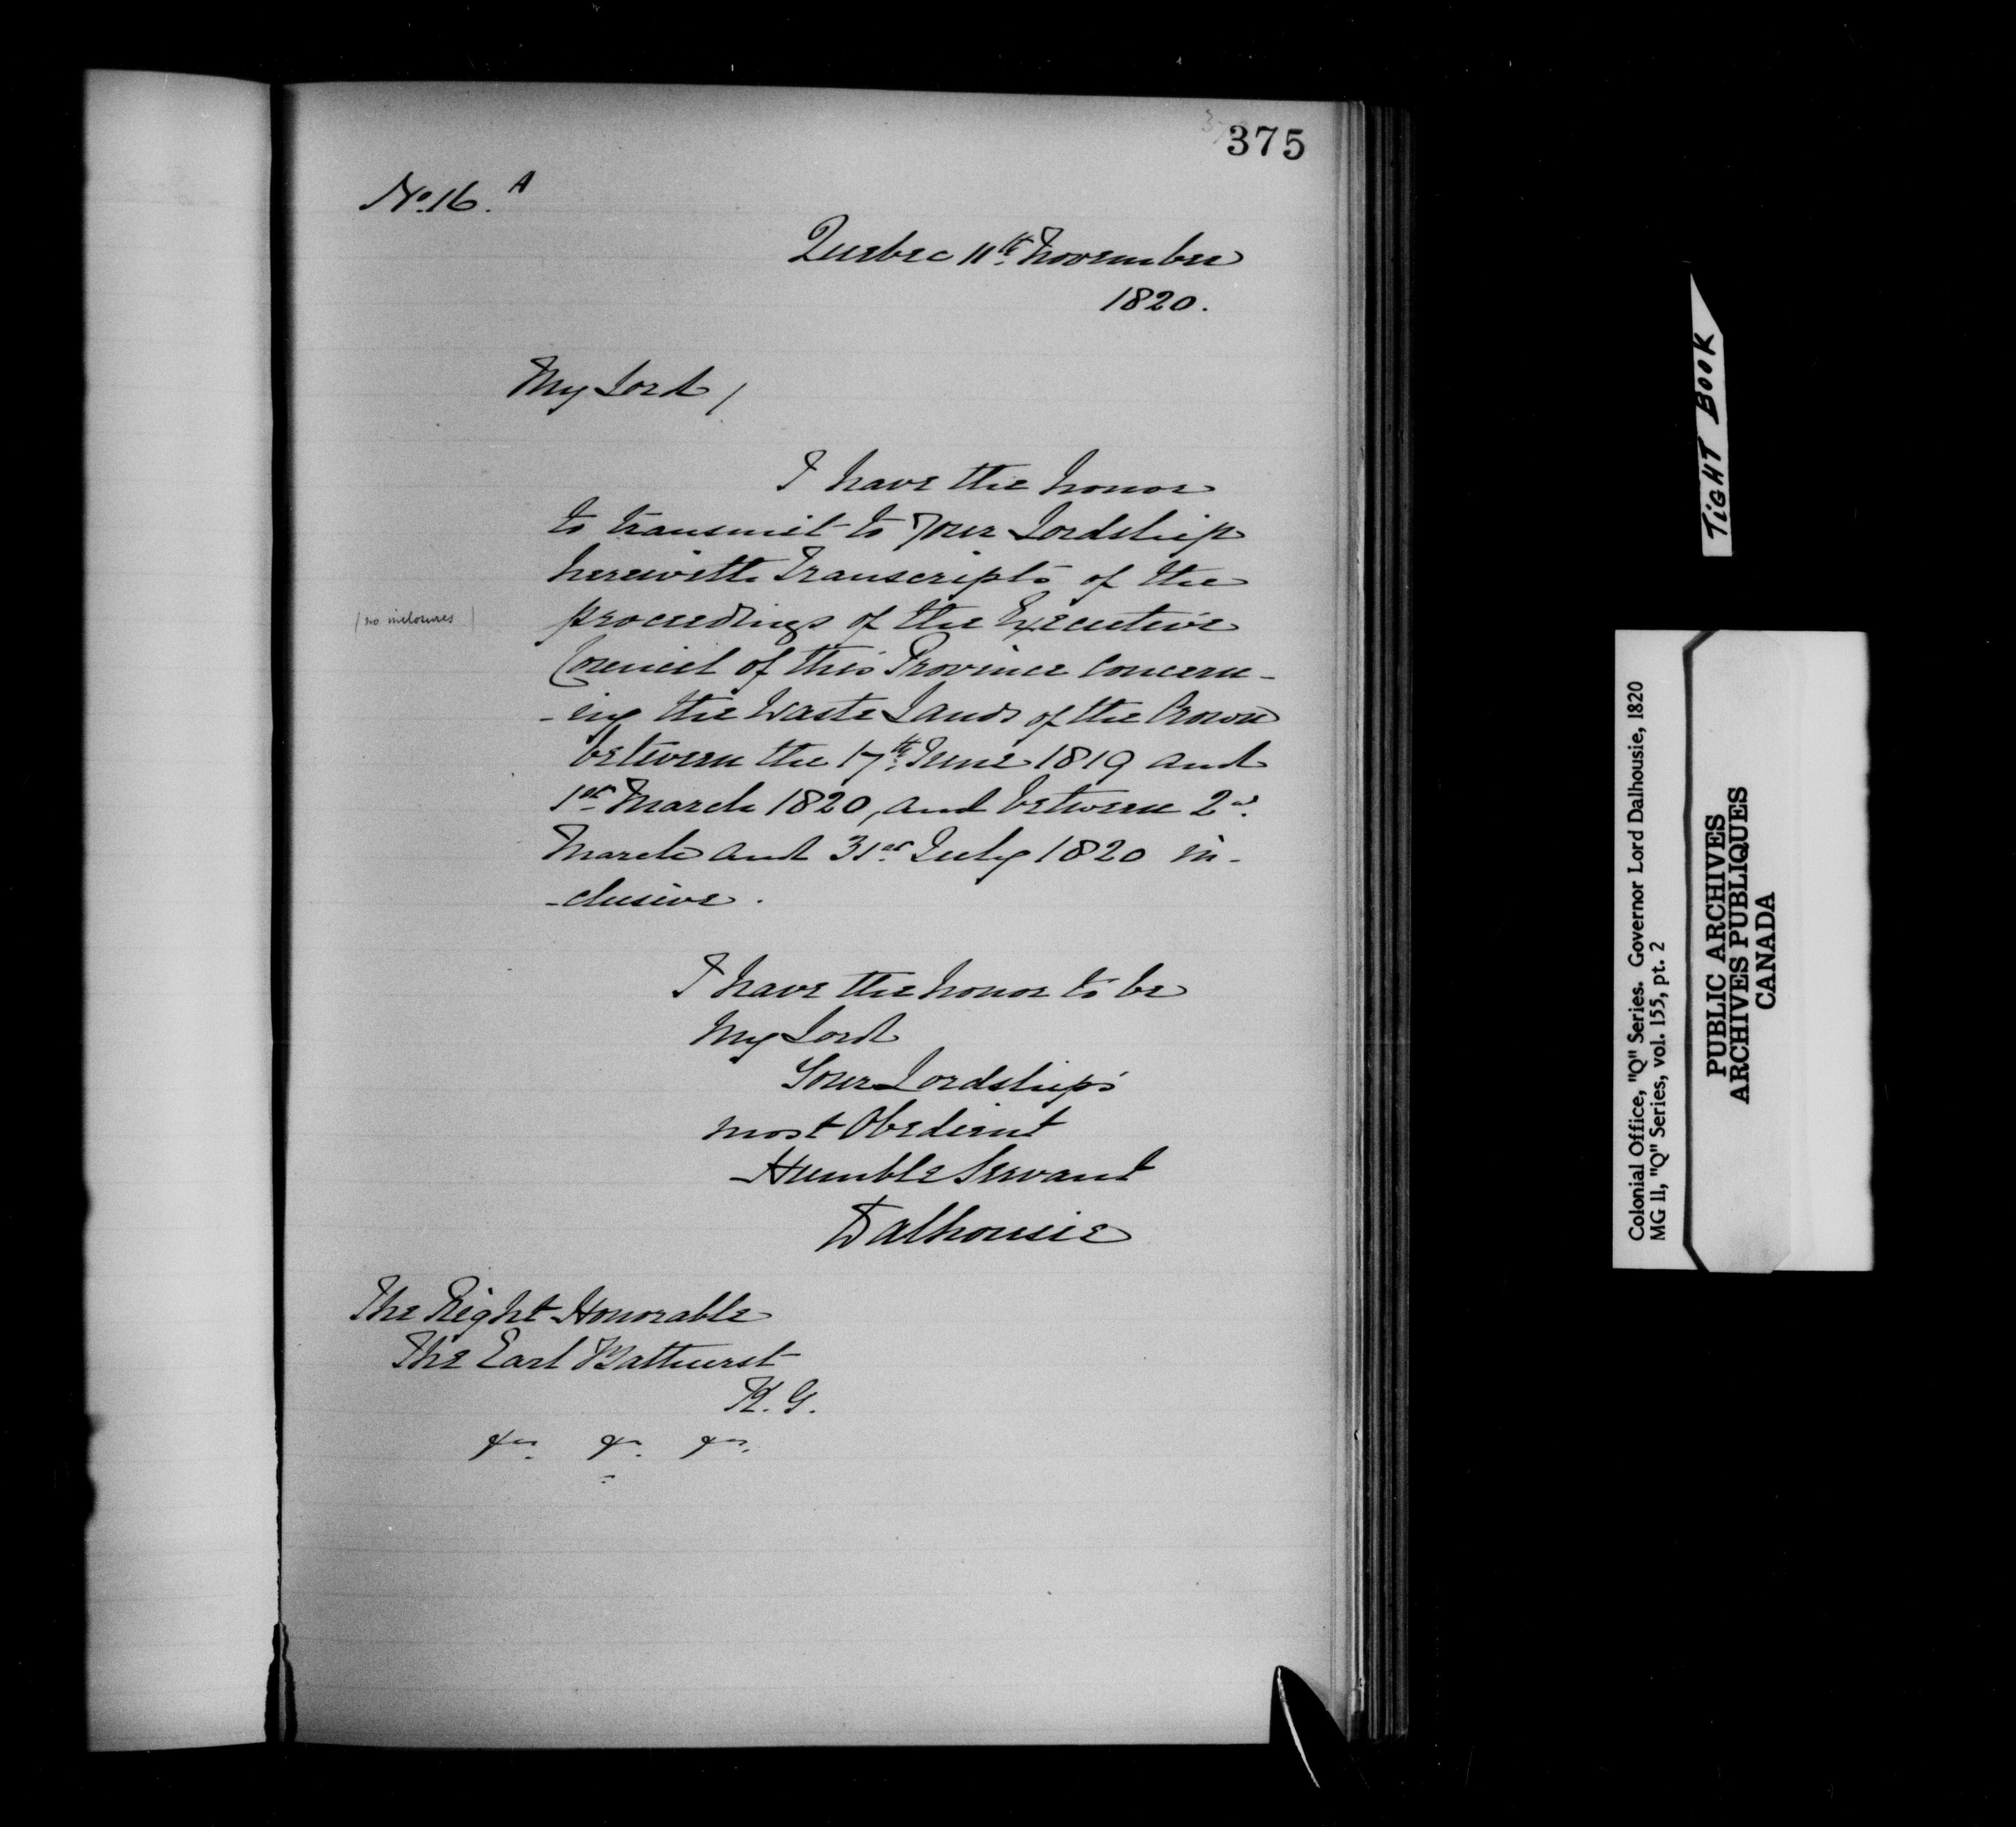 375
No. 16. A
Quebec 11th November
1820.
My Lord,
I have the honor
to transmit to Your Lordship
herewith Transcripts of the
(no inclosures)
proceedings of the Executive
Council of this Province concern-
-ing the Waste Lands of the Crown
between the 17th June 1819 and
1st March 1820, and between 2d
March and 31st July 1820 in-
-clusive.
I have the honor to be
My Lord
Your Lordship's
most Obedient
Humble Servant
Dalhousie
The Right Honorable
The Earl Bathurst
K. G.
&c. &c. &c.
TIGHT BOOK
Colonial Office, "Q" Series. Governor Lord Dalhousie, 1820
MG 11, "Q" Series, vol. 155, pt. 2
PUBLIC ARCHIVES
ARCHIVES PUBLIQUES
CANADA